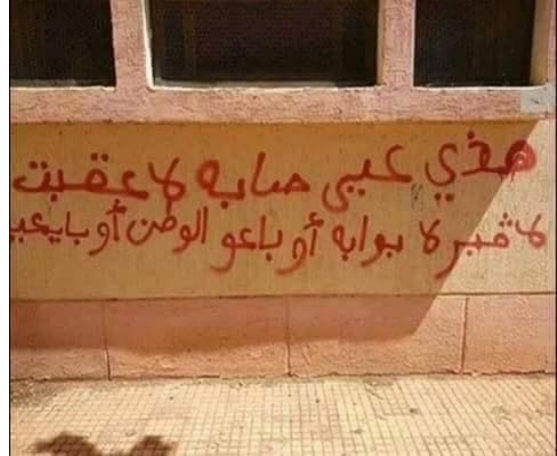 هذي عيبي صابه لا عقبت
لا قبر لا بوابه أو باعو الوطن أو بايعيـ